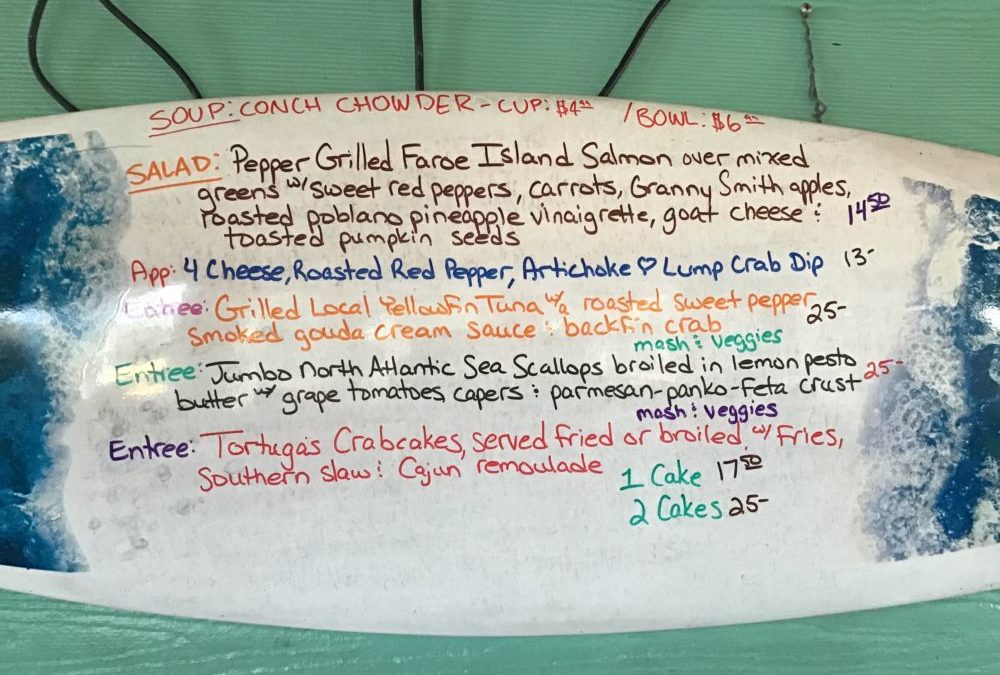 SOUP: CONCH CHOWDER - CUP: $4.99 /BOWL: $6.99
SALAD: Pepper Grilled Faroe Island Salmon over mixed
greens w/ sweet red peppers, carrots, Granny Smith apples,
roasted poblano pineapple vinaigrette, goat cheese & 14.50
toasted pumpkin seeds
App: 4 Cheese, Roasted Red Pepper, Artichoke ♡ Lump Crab Dip 13-
Entree: Grilled Local Yellowfin Tuna w/a roasted sweet pepper 25-
smoked gouda cream sauce & backfin crab
mash & veggies
Entree: Jumbo North Atlantic Sea Scallops broiled in lemon pesto 25-
butter w/ grape tomatoes, capers & parmesan-panko-feta crust
mash & veggies
Entree: Tortugas Crabcakes, served fried or broiled, w/ Fries,
Southern slaw & Cajun remoulade
1 Cake 17.50
2 Cakes 25-